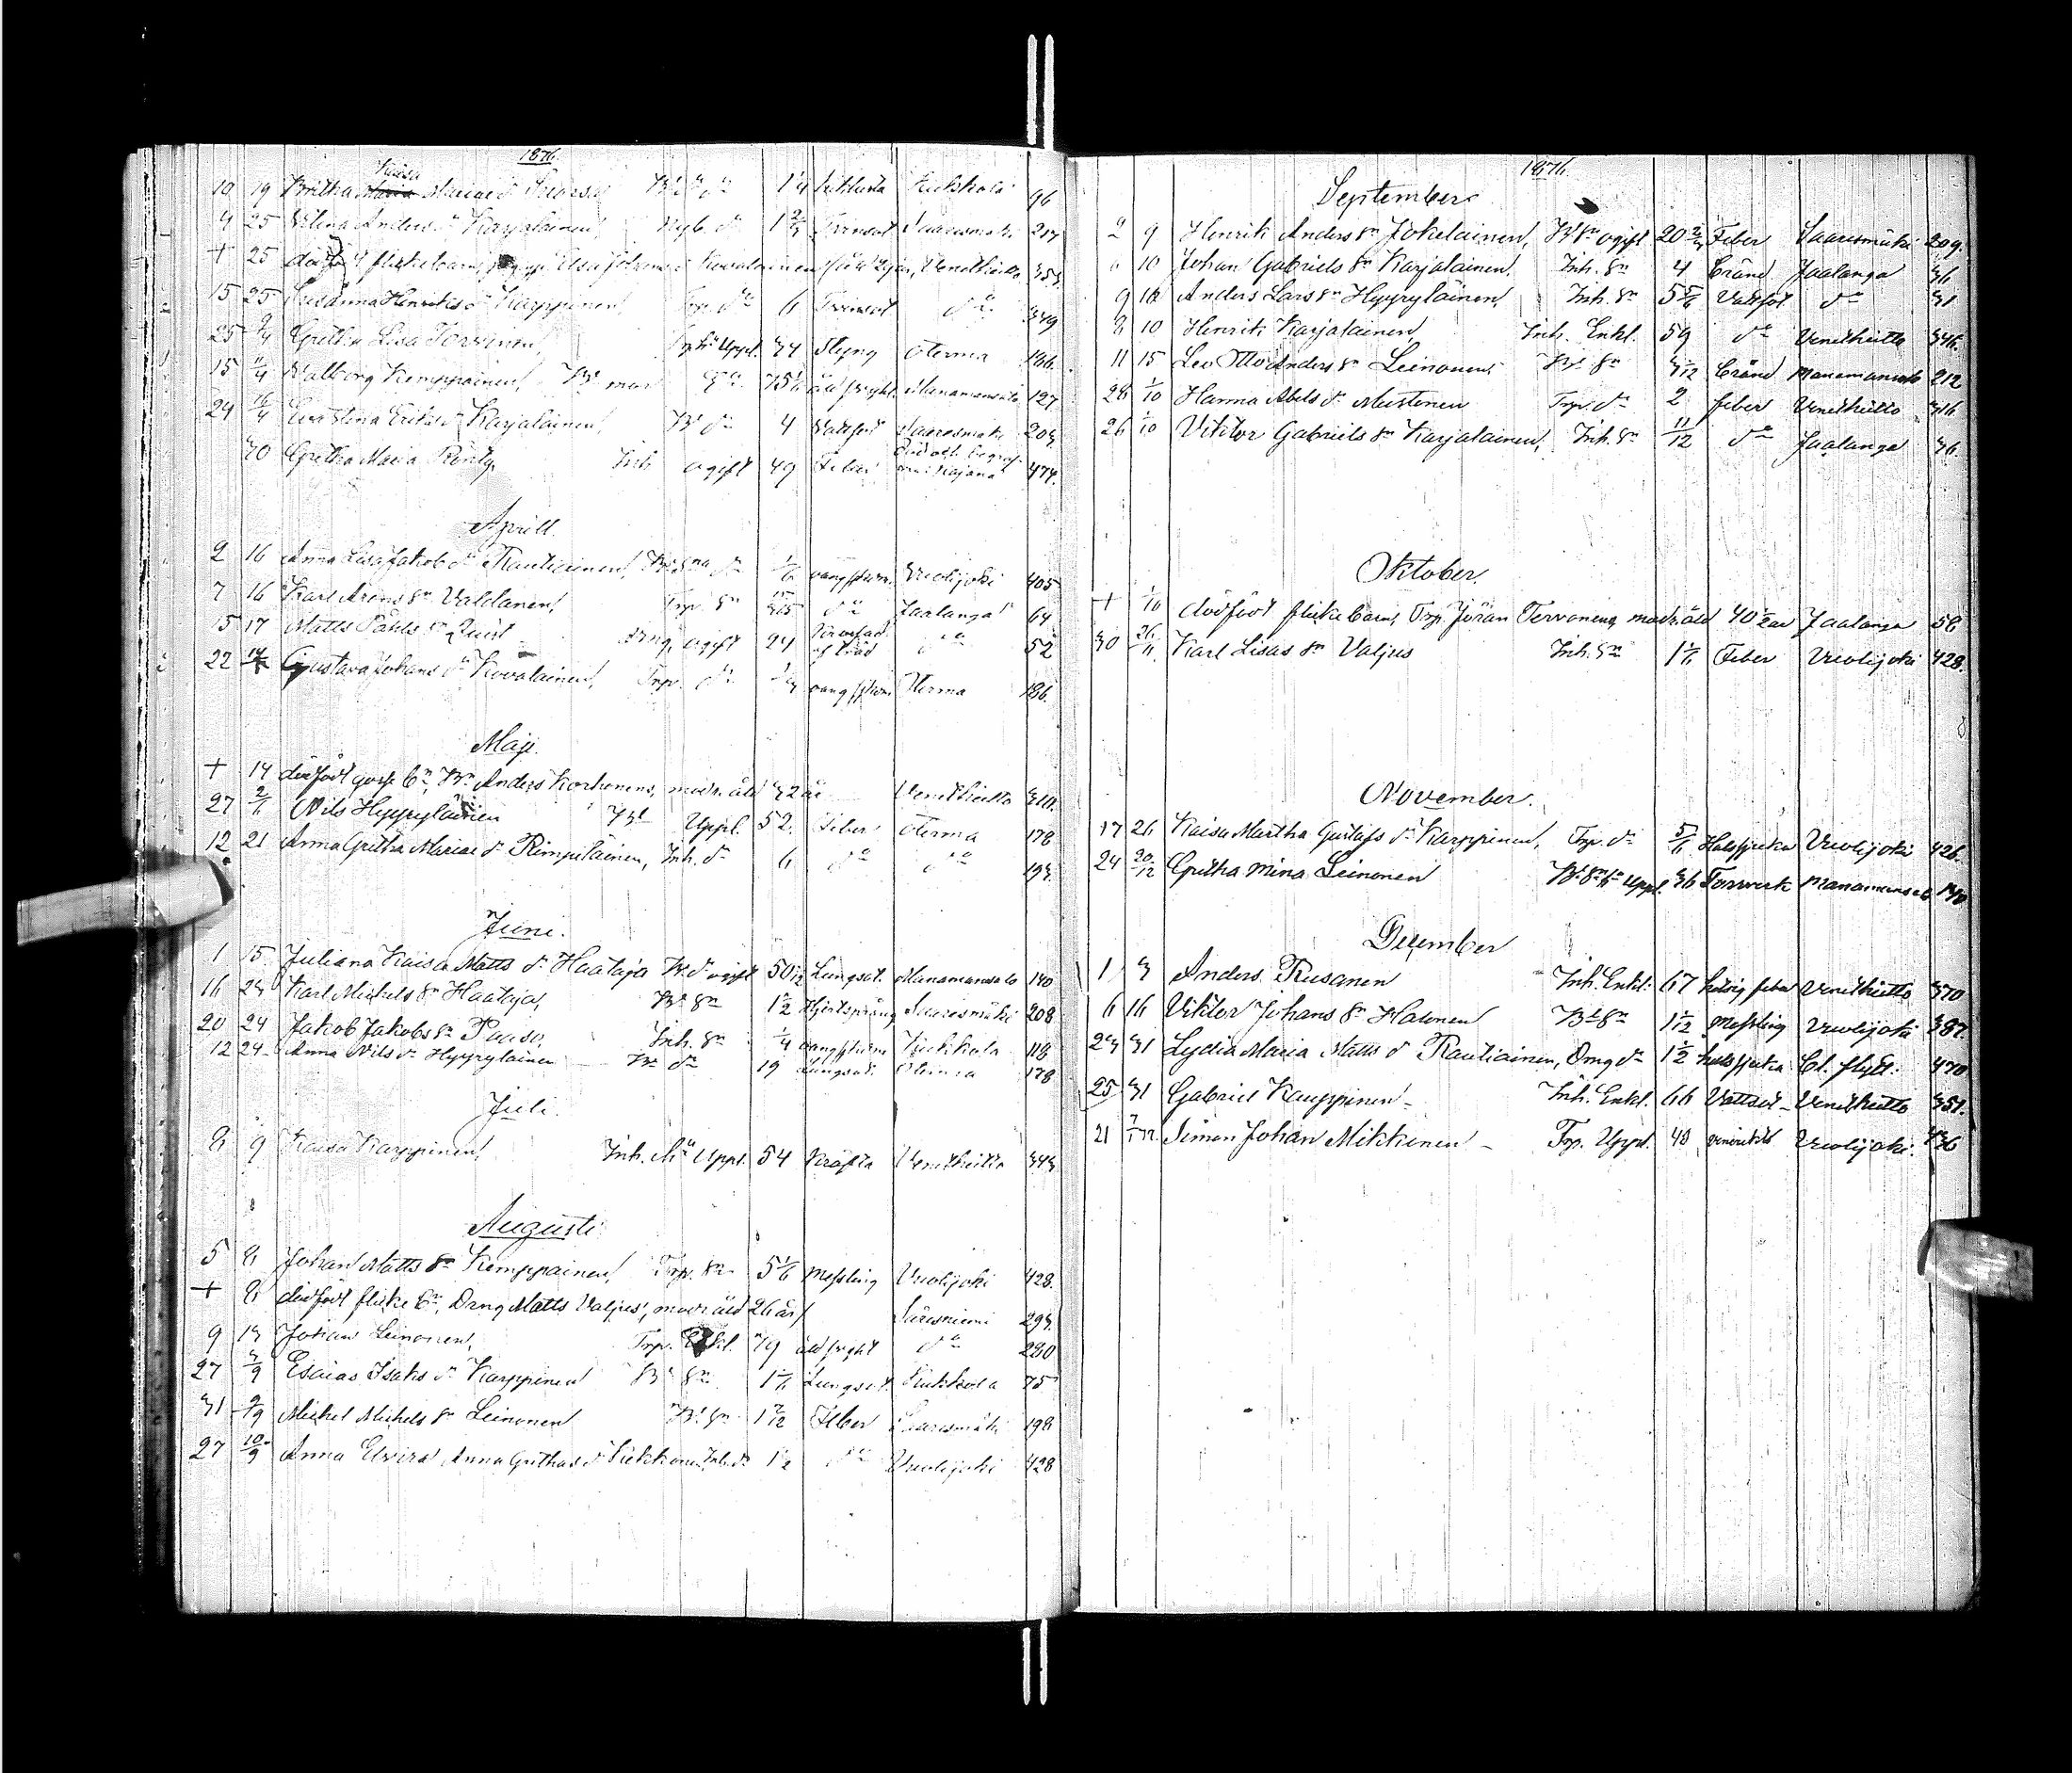 1876.
Kaisa
10 19 Britha Mariae dr 1/4 Kukkola 96
4 25 Anders dr Karjalainen, Nyb. dr 1 2/3 Saaresmäki
+ 25 dödfödt flickebarn, Elsa Johans dr Kovalainen Venetheitto
15 25 Susanna Henriks dr Karppinen Trp. dr 6 do 349
25 Gretha Lisa Tervonen, Uppl. 34 Slag Oterma 186.
15 11/4 Walborg Kemppainen, Bd mor Manamansalo 127
24 16/4 Eva Stina Eriks dr Karjalainen, Bd dr 4 Vattsot Saaresmäki 203
30 Gretha Maria Inh ogift 49 Feber Kajana 474.
Aprill.
2 16 Anna Lisa Jakobs dr Rautiainen, dr 1/6 Vuolijoki 405
7 16 Karl Arons sn Valdanen, Trp. sn do Jaalanga 64
15 17 Matts Påhls sn Quist Drng, ogift 24 do 52
22 Gustava Johans dr Kovalainen, Trp. dr Oterma 186.
Maji.
+ 14 dödfödt gosse bn, Bn Anders Korhonens, modr. åld 32 år Venetheitto 310.
27 2/6 Nils Hyyryläinen Bd Uppl. 52. Feber Oterma 178
12 21 Anna Gretha Mariae dr Rimpiläinen, Inh. dr 6 do do 193.
Juni.
1 5. Juliana Kaisa Matts dr Haataja Bd dr ogift 50 Lungsot. Manamansalo 140
16 23 Karl Mickels sn Haataja, Bd sn 1 1/2 Hjertsprång Saaresmäki 208
20 24 Jakob Jakobs sn Paaso, Inh. sn 1/4 Kukkola 118
12 24 Anna Nils dr Hyyryläinen Bd dr 19 Lungsot. Oterma 178
Juli.
8 9 Kaisa Karppinen, Inh. Uppl. 54 Kräfta Venetheitto 343.
Augusti
5 8 Johan Matts sn Kemppainen, Trp. sn 5 1/6 Messling Vuolijoki 428.
+ 8 dödfödt flicke bn, Drng Matts Valjus, modr åld 26 år Säresniemi 293.
9 13 Johan Leinonen, Trp. 79 do 280
27 3/9 Esaias Isaks Karppinen Bd sn Lungsot. Kukkola 75
31 9/9 Mickel Mickels sn Leinonen Bd sn 1 7/12 Feber Saaresmäki 198
27 10/9 Anna Elvira Anna Grethas dr Inh. dr 1 1/2 do Vuolijoki 428
1876.
September
2 9 Henrik Anders sn Jokelainen, Bd sn ogift 20 2/3 Feber Saaresmäki 209.
10 Johan Gabriels sn Karjalainen. Inh. sn 4 Bränd Jaalanga 36
9 10 Anders Lars sn Hyyryläinen, Inh. sn 5 5/6 Vattsot do 31
8 10 Henrik Karjalainen, Inh. Enkl. 59 do Venetheitto 346.
11 15 Leo Otto Anders sn Leinonen, Bd sn 3/12 Bränd Manamansalo 212
28 1/10 Hanna Abels dr Mustonen Trp. dr 2 feber Venetheitto 316
26 1/10 Viktor Gabriels sn Karjalainen, Inh. sn 11/12 do Jaalanga 36.
Oktober.
+ 1/10 dödfödt flicke barn, Trp. Jöran Tervonens, modr. åld 40 1/2 år Jaalanga 58
30 26/11. Karl Lisas sn Valjus Inh. sn 1 1/6 Feber Vuolijoki 428.
November.
17 26 Kaisa Martha Gustafs dr Karppinen, Trp. dr 5/6 Halssjuka Vuolijoki 426.
24 20/12 Gretha Mina Leinonen Uppl. 36 Torrverk Manamansalo
December
1 3 Anders Rusanen Inh. Enkl. 67 hetsig feber Venetheitto 370
6 16 Viktor Johans sn Halonen Bd sn 1 1/12 Messling Vuolijoki 387.
23 31 Lydia Maria Matts dr Rautiainen, Drng dr 1 1/2 halssjuka Bl. flytt. 470
25 31 Gabriel Kauppinen Inh. Enkl. 66 Vattsot Venetheitto 351.
21 Simon Johan Mikkonen Trp. Uppl. 40 Vuolijoki. 436